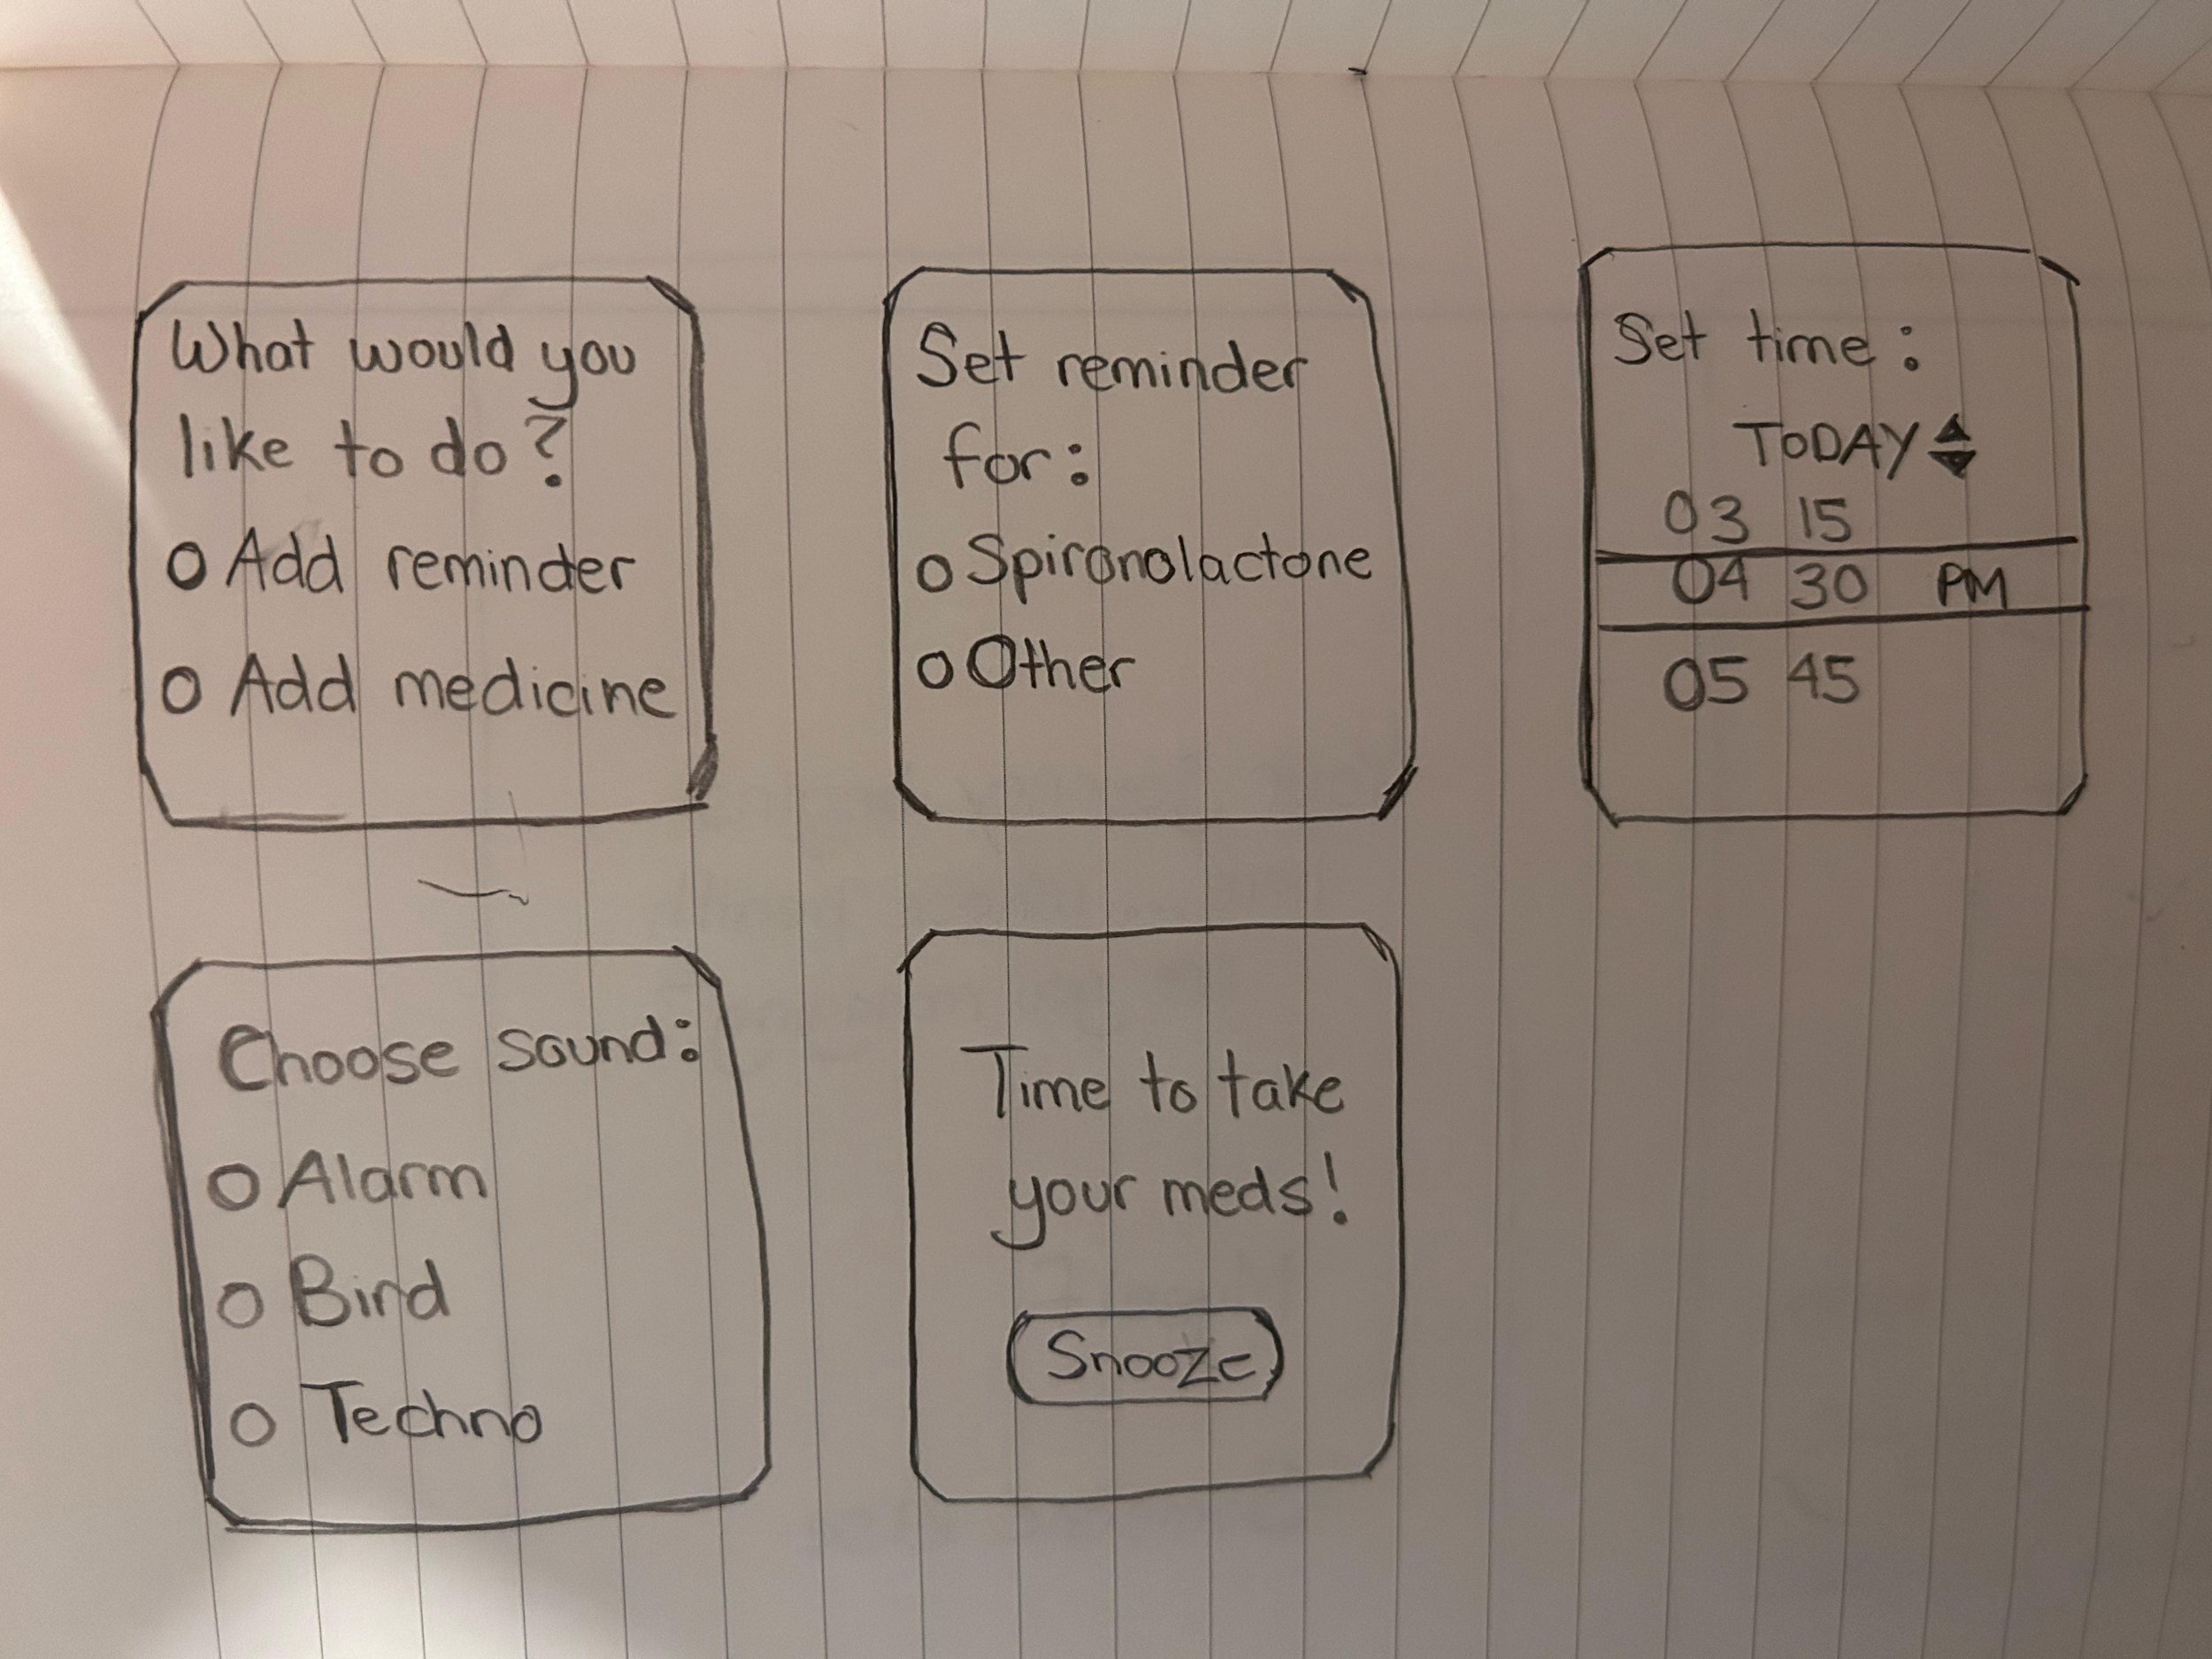 What would you
like to do?
O Add reminder
O Add medicine
Set reminder
for:
O Spironolactone
O Other
Set time:
TODAY
03 15
04 30 PM
05 45
Choose sound:
O Alarm
O Bird
O Techno
Time to take
your meds!
Snooze